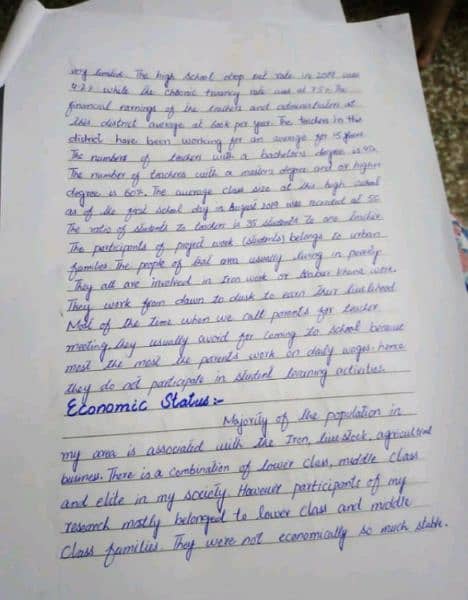 very limited. The high school drop out rate in 2019 was
4.2% while the chronic truancy rate was at 7.5%. The
financial earnings of the teachers and administrators at
this district average at 600k per year. The teachers in this
district have been working for an average for 15 years.
The numbers of teachers with a bachelors degree is
The number of teachers with a masters degree and or higher
degree is 60%. The average class size at this high school
as of the first school day in August 2019 was recorded at 50.
The ratio of students to teachers is 35 students to one teacher.
The participants of project work (students) belongs to urban
families. The people of area usually living in poverty
They all are involved in Iron work or work.
They work from dawn to dusk to earn their livelihood
Most of the time when we call parents for teacher
meeting, they usually avoid for coming to school because
most the most the parents work on daily wages. hence
they do not participate in student learning activities.
Economic Status:-
Majority of the population in
my area is associated with the Iron, live stock, agricultural
business. There is a combination of lower class, middle class
and elite in my society. However participants of my
research mostly belonged to lower class and middle
class families. They were not economically so much stable.